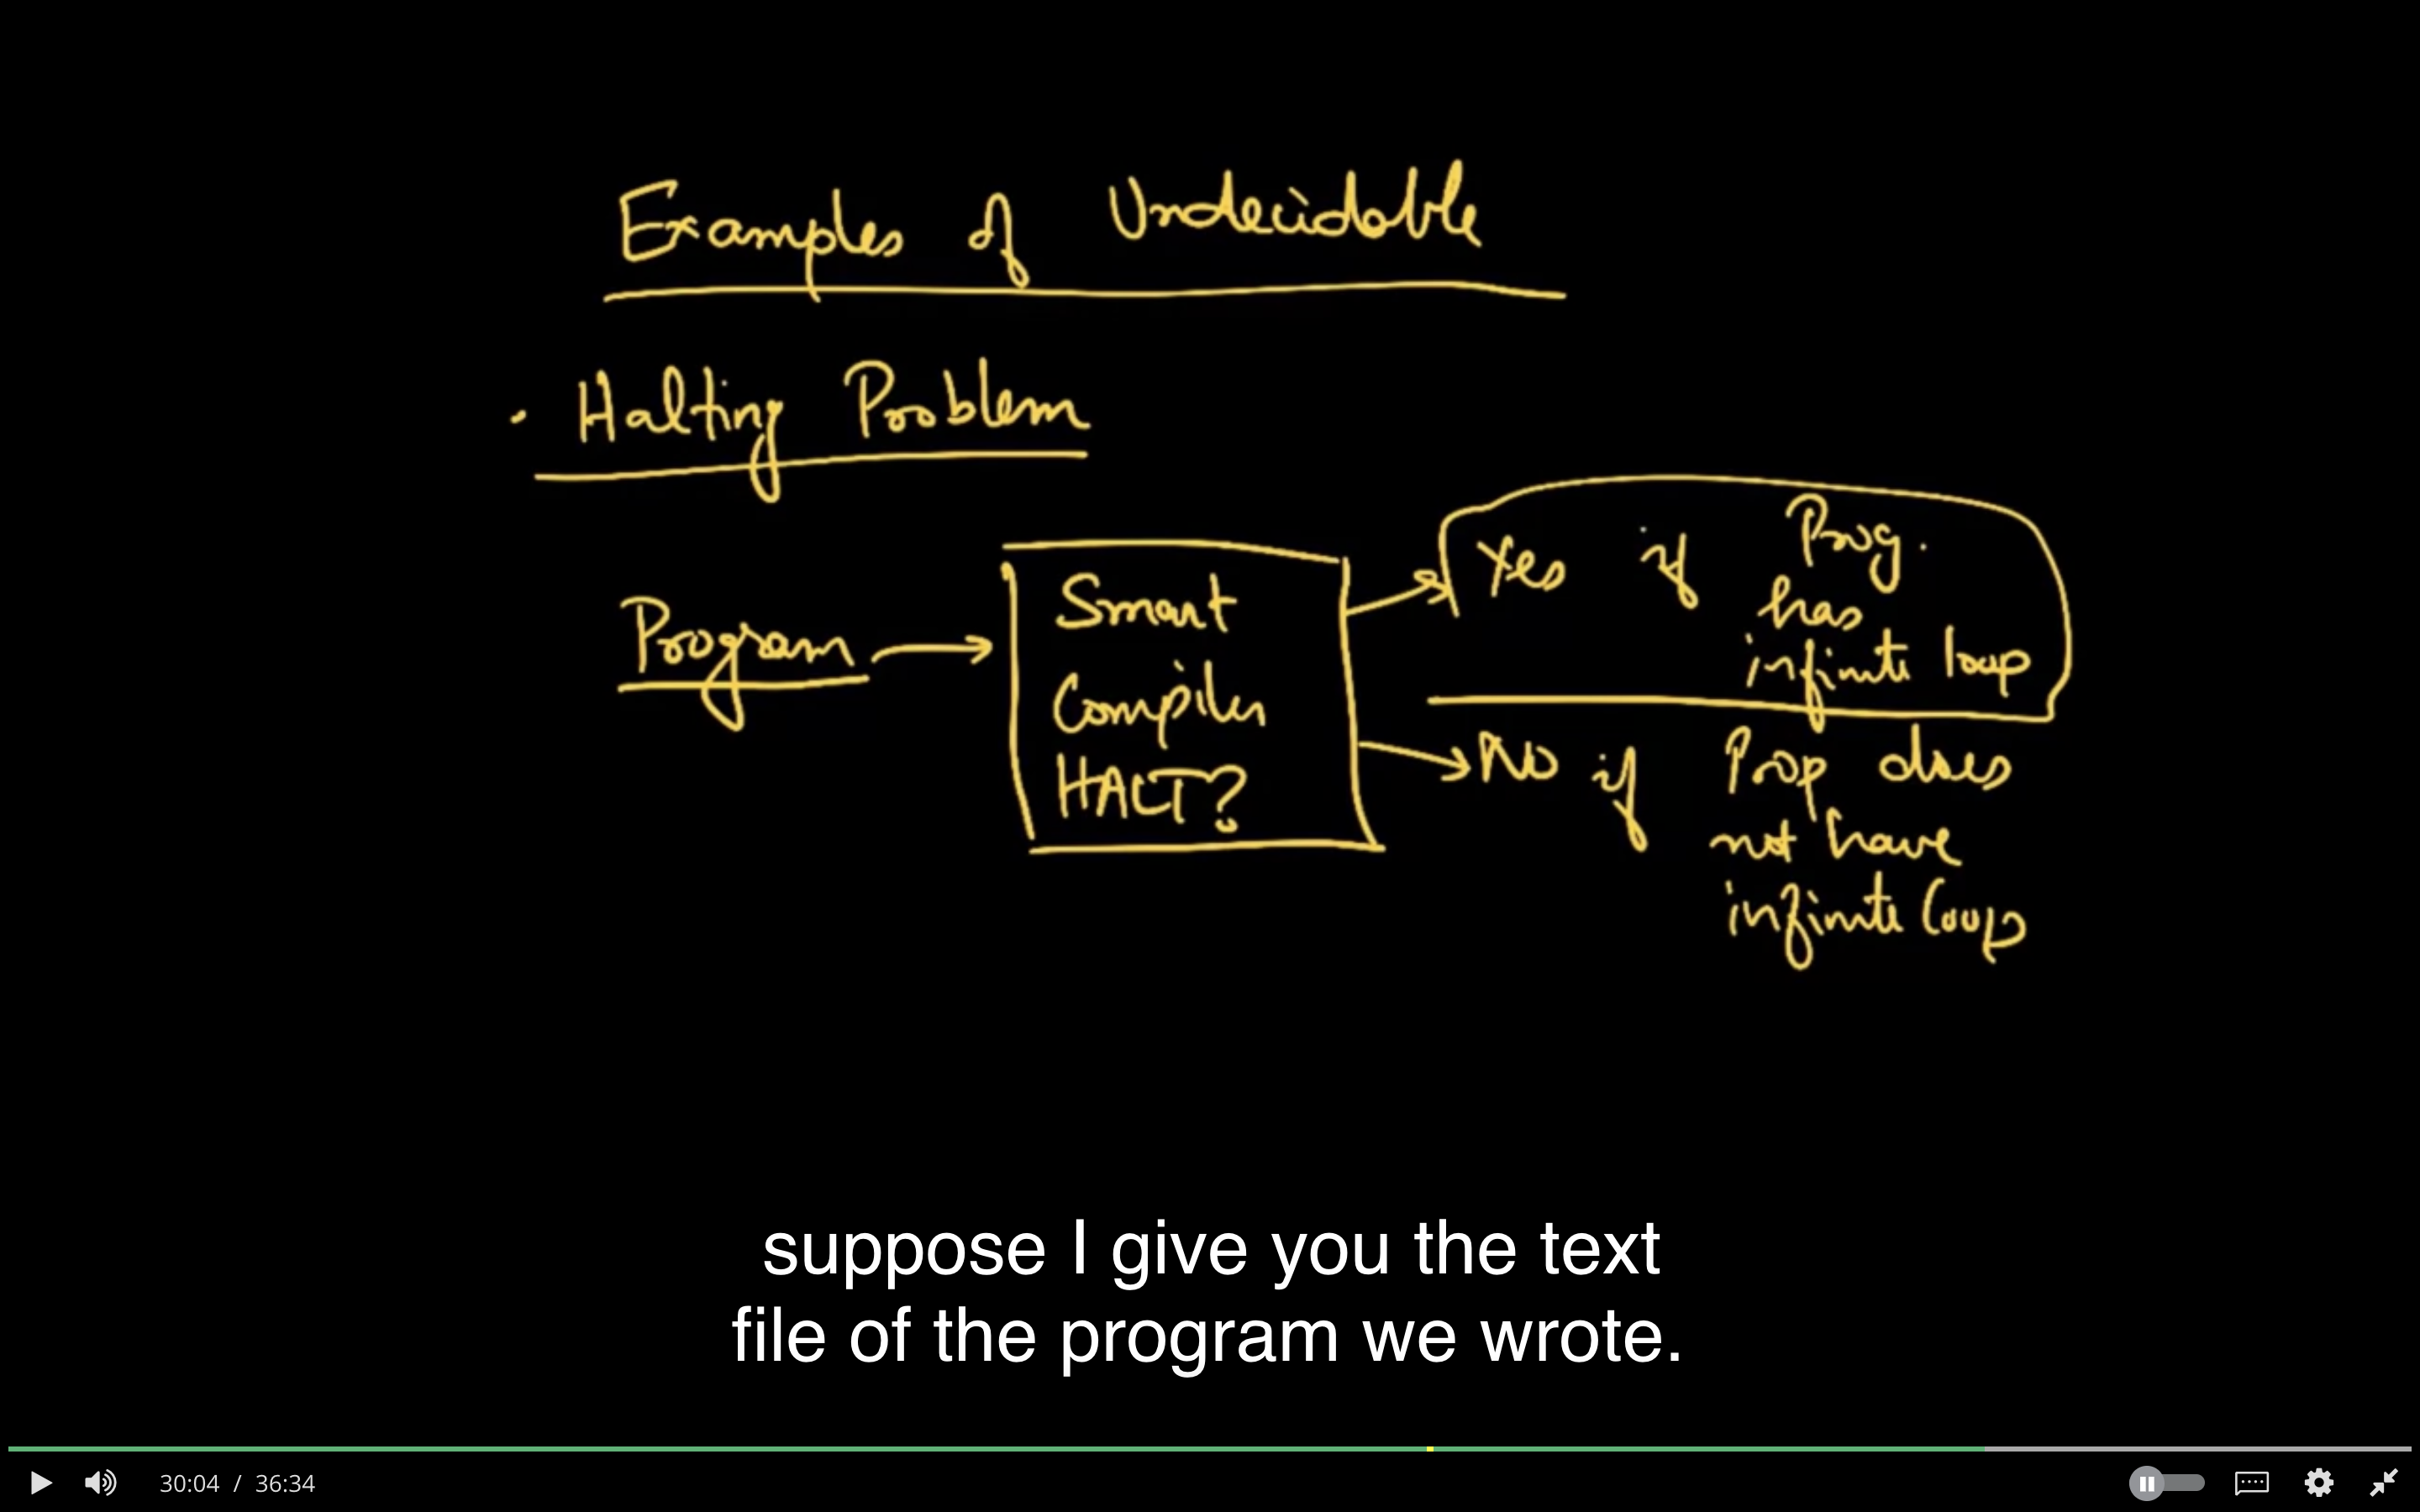 Examples of Undecidable
· Halting Problem
Program
Smart
Compiler
HALT?
Yes if Prog.
has
infinite loop
No if Prog does
not have
infinite loop
suppose I give you the text
file of the program we wrote.
30:04 / 36:34